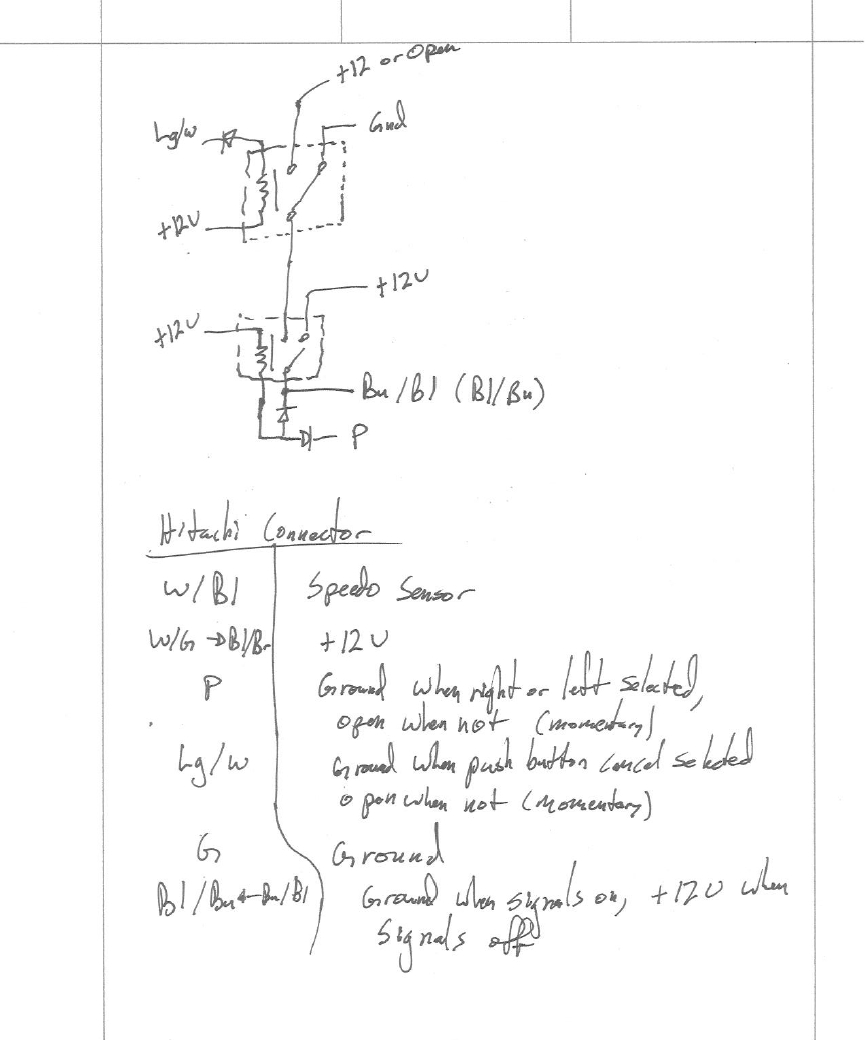 +12 or Open
Lg/w
Gnd
+12V
+12V
+12V
Bu/Bl (Bl/Bu)
P
Hitachi Connector
W/Bl Speedo Sensor
W/G → Bl/Br +12V
P Ground when right or left selected,
open when not (momentary)
Lg/w Ground when push button cancel selected
open when not (momentary)
G Ground
Bl/Bu ← Bu/Bl Ground when signals on, +12V when
signals off